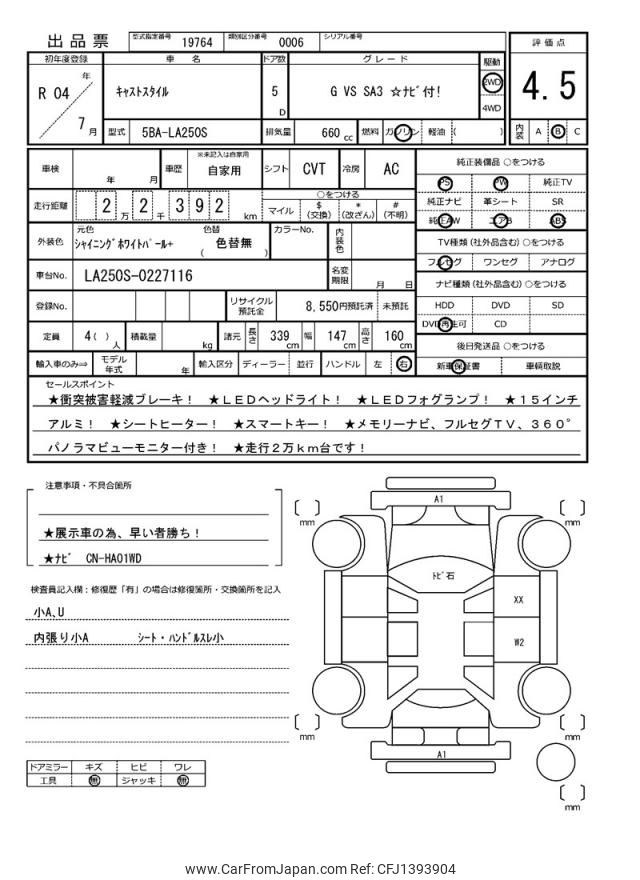 出品票
型式指定番号 19764 類別区分番号 0006 シリアル番号
評価点
4.5
内装 A B C
初年度登録 車名 ドア数 グレード 駆動
R 04 年 7 月
ｷｬｽﾄｽﾀｲﾙ 5 D G VS SA3 ☆ﾅﾋﾞ付! 2WD
4WD
型式 5BA-LA250S 排気量 660 cc 燃料 ガソリン 軽油 ( )
車検 年 月 車歴 ※未記入は自家用 自家用 シフト CVT 冷房 AC
走行距離 2 万 2 千 3 9 2 km
○をつける
マイル $(交換) *(改ざん) #(不明)
外装色 元色 ｼｬｲﾆﾝｸﾞﾎﾜｲﾄﾊﾟｰﾙ+ 色替 ( 色替無 ) カラーNo. 内装色
車台No. LA250S-0227116 名変期限 月 日
登録No. リサイクル預託金 8,550円預託済 未預託
定員 4( ) 人 積載量 kg 諸元 長さ 339 cm 幅 147 cm 高さ 160 cm
輸入車のみ⇒ モデル年式 年 輸入区分 ディーラー 並行 ハンドル 左 右
純正装備品 ○をつける
PS PW 純正TV
純正ナビ 革シート SR
純正AW エアB ABS
TV種類(社外品含む) ○をつける
フルセグ ワンセグ アナログ
ナビ種類(社外品含む) ○をつける
HDD DVD SD
DVD再生可 CD
後日発送品 ○をつける
新車保証書 車輌取説
セールスポイント
★衝突被害軽減ブレーキ! ★LEDヘッドライト! ★LEDフォグランプ! ★15インチ
アルミ! ★シートヒーター! ★スマートキー! ★メモリーナビ、フルセグTV、360°
パノラマビューモニター付き! ★走行2万km台です!
注意事項・不具合箇所
★展示車の為、早い者勝ち!
★ﾅﾋﾞ CN-HA01WD
検査員記入欄:修復歴「有」の場合は修復箇所・交換箇所を記入
小A､U
内張り小A ｼｰﾄ・ﾊﾝﾄﾞﾙｽﾚ小
ドアミラー キズ ヒビ ワレ
工具 無 ジャッキ 無
A1
mm
mm
ﾄﾋﾞ石
XX
W2
mm
mm
A1
mm
www.CarFromJapan.com Ref: CFJ1393904